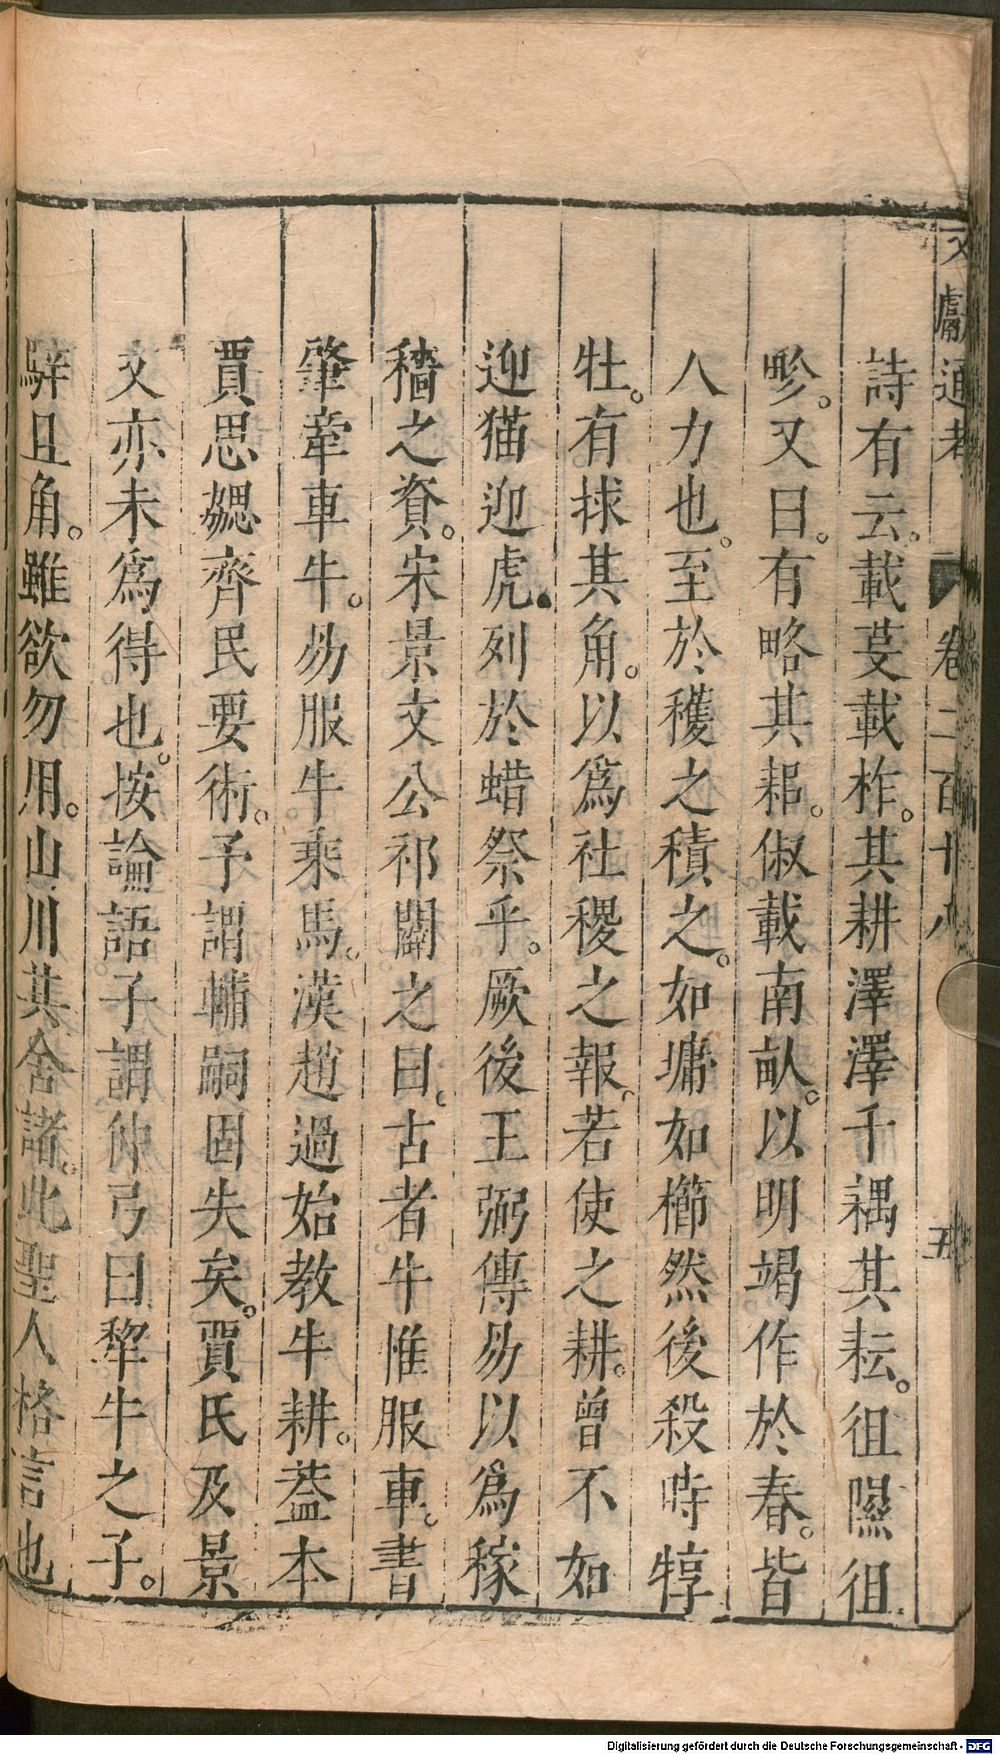 文獻通考 卷二百十八 五
詩有云。載芟載柞。其耕澤澤千耦其耘。徂隰徂
畛。又曰。有略其耜。俶載南畝。以明竭作於春。皆
人力也。至於穫之積之。如墉如櫛然後殺時犉
牡。有捄其角。以為社稷之報。若使之耕。曾不如
迎猫迎虎。列於蜡祭乎。厥後王弼傳易以為稼
穡之資。宋景文公祁闢之曰。古者牛惟服車。書
肇牽車牛。易服牛乘馬。漢趙過始教牛耕。葢本
賈思勰齊民要術。予謂輔嗣固失矣。賈氏及景
文亦未為得也。按論語子謂仲弓曰犂牛之子。
騂且角。雖欲勿用。山川其舍諸。此聖人格言也
Digitalisierung gefördert durch die Deutsche Forschungsgemeinschaft - DFG